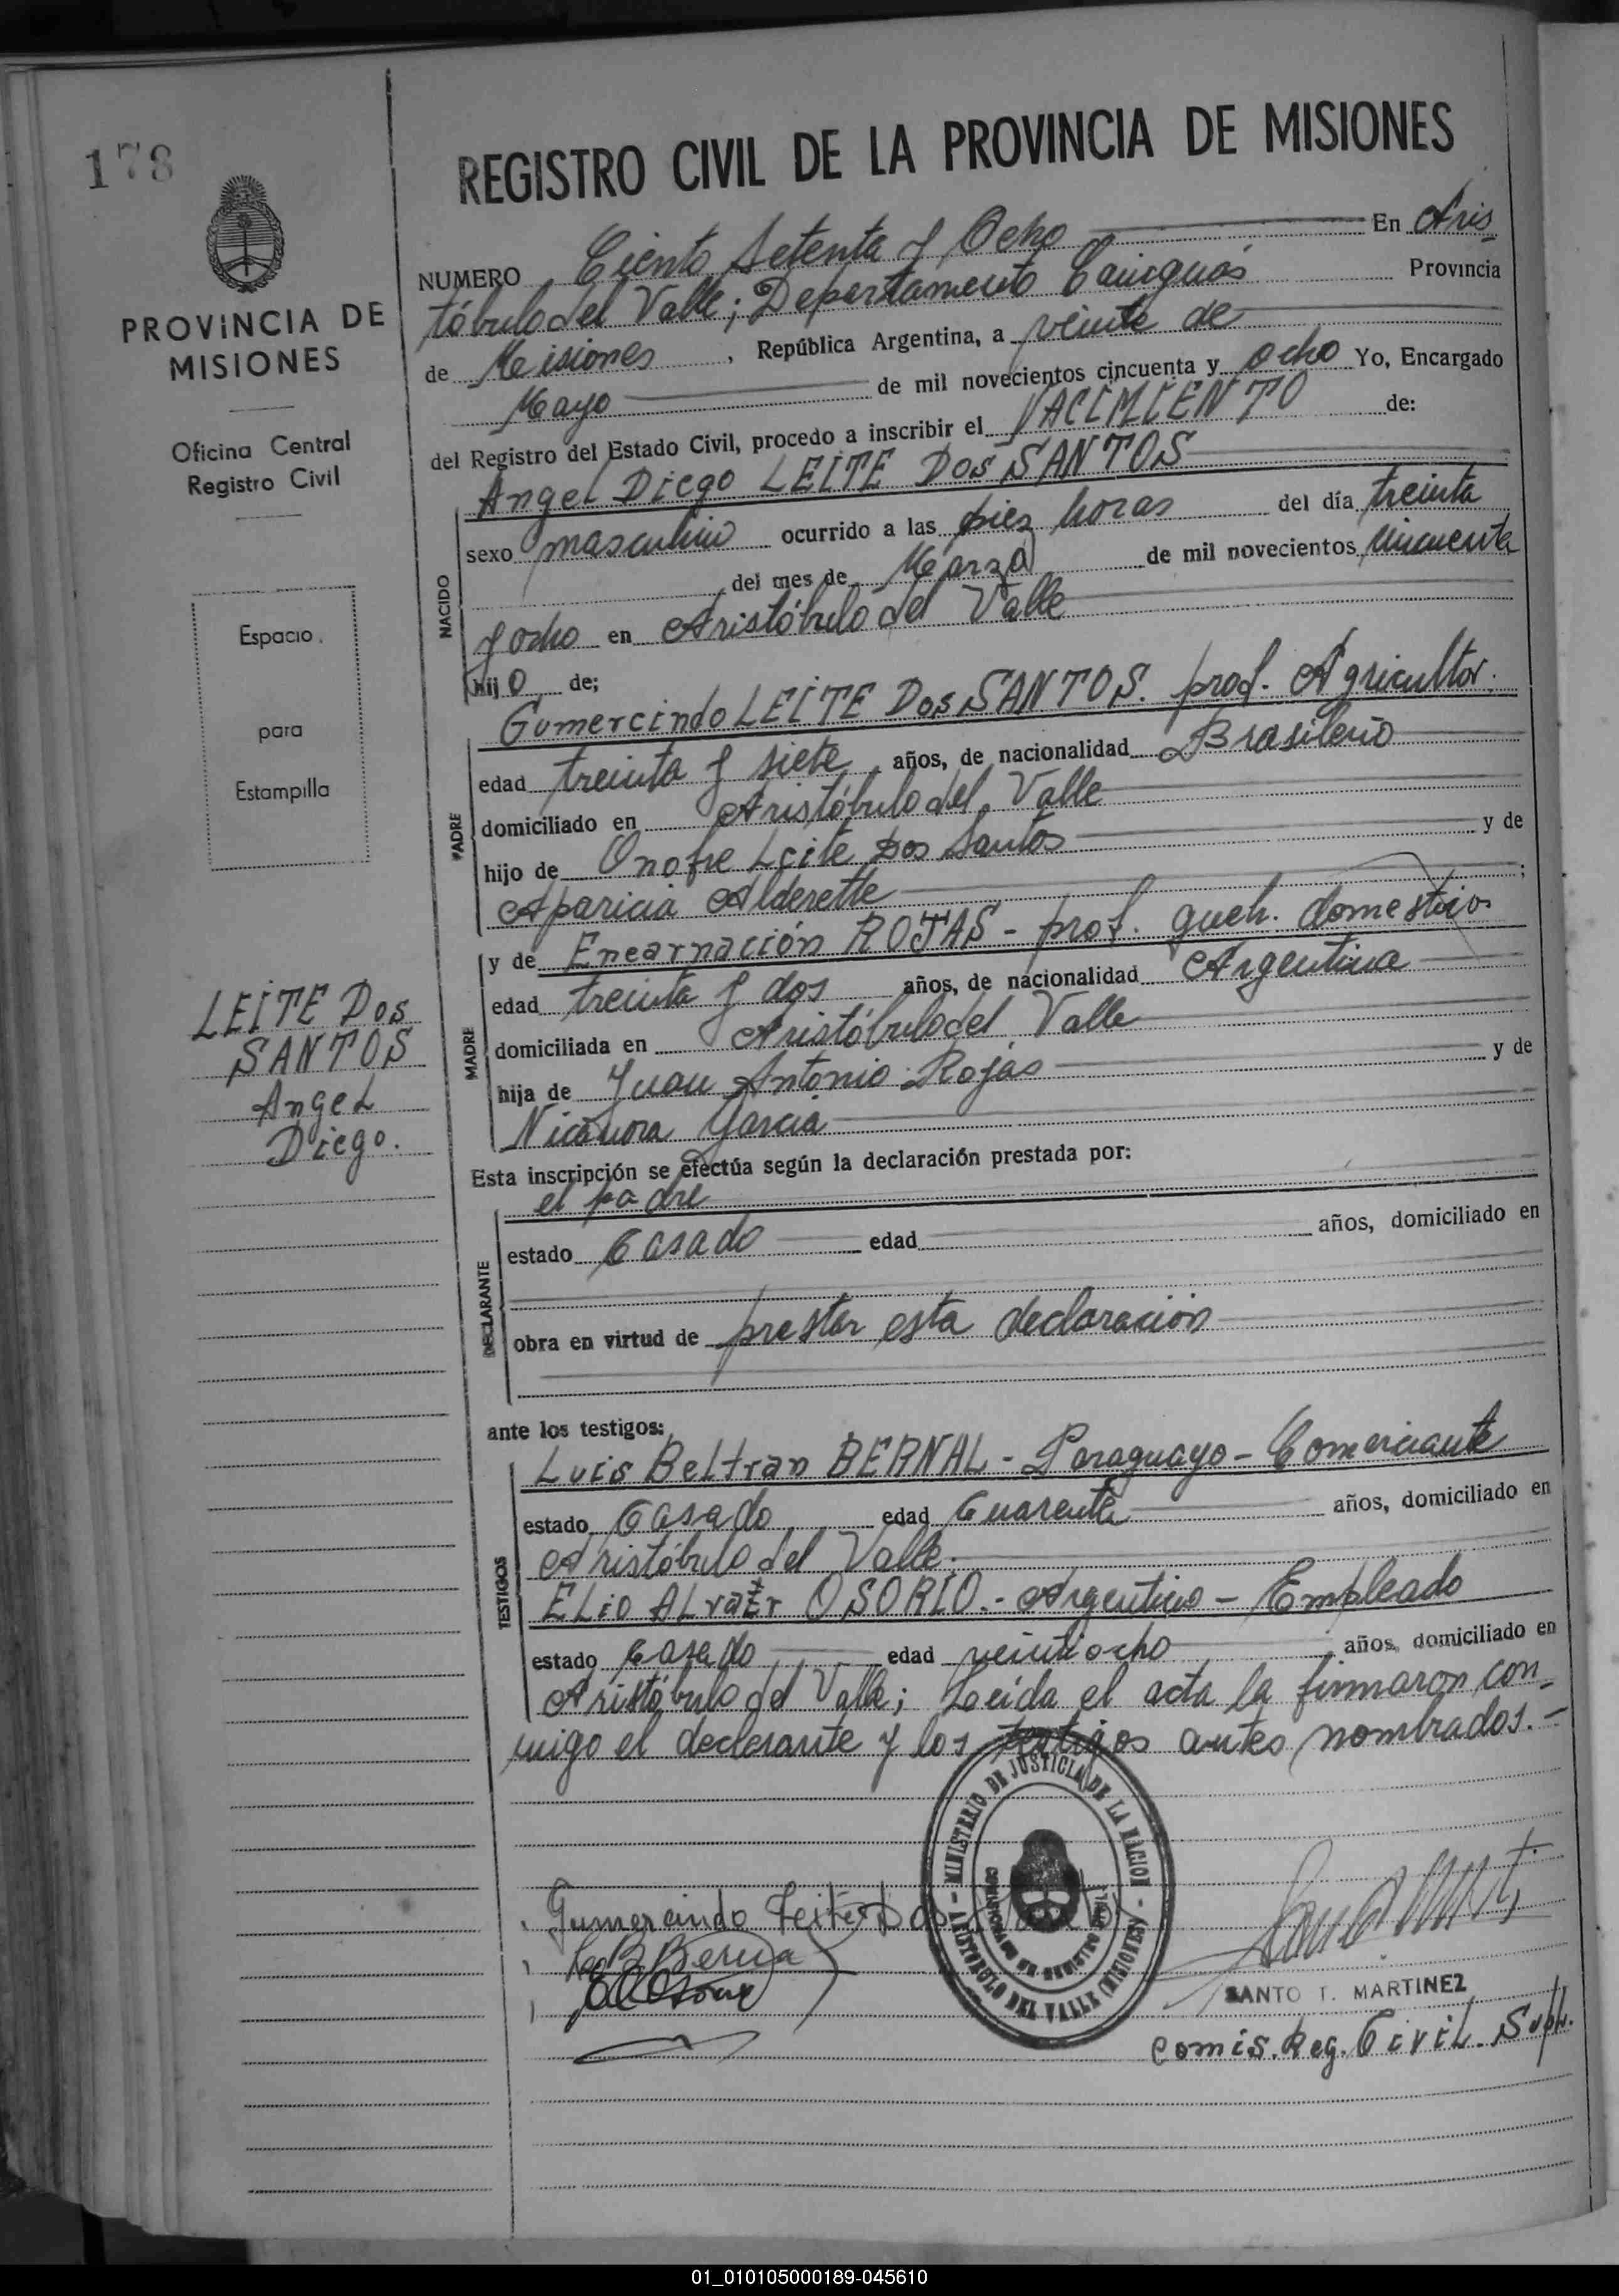 178
REGISTRO CIVIL DE LA PROVINCIA DE MISIONES
PROVINCIA DE
MISIONES
Oficina Central
Registro Civil
Espacio
para
Estampilla
LEITE Dos
SANTOS
Angel
Diego.
NUMERO Ciento Setenta y Ocho En Aris-
tóbulo del Valle; Departamento Cainguás Provincia
de Misiones, República Argentina, a veinte de
Mayo de mil novecientos cincuenta y ocho Yo, Encargado
del Registro del Estado Civil, procedo a inscribir el NACIMIENTO de:
Angel Diego LEITE Dos SANTOS
NACIDO
sexo masculino ocurrido a las diez horas del día treinta
del mes de Marzo de mil novecientos cincuenta
y ocho en Aristóbulo del Valle
hijo de;
Gumercindo LEITE Dos SANTOS. prof. Agricultor.
PADRE
edad treinta y siete años, de nacionalidad Brasileño
domiciliado en Aristóbulo del Valle
hijo de Onofre Leite Dos Santos y de
Aparicia Alderette;
y de Encarnación ROJAS - prof. queh. domesticos
MADRE
edad treinta y dos años, de nacionalidad Argentina
domiciliada en Aristóbulo del Valle
hija de Juan Antonio Rojas y de
Nicanora Garcia
Esta inscripción se efectúa según la declaración prestada por:
el padre
DECLARANTE
estado Casado edad años, domiciliado en
obra en virtud de prestar esta declaración
ante los testigos:
Luis Beltran BERNAL - Paraguayo - Comerciante
TESTIGOS
estado Casado edad Cuarenta años, domiciliado en
Aristóbulo del Valle.
ELio OSORIO.- Argentino - Empleado
estado Casado edad veintiocho años, domiciliado en
Aristóbulo del Valle; Leída el acta la firmaron con-
migo el declarante y los testigos antes nombrados.-
MINISTERIO DE JUSTICIA DE LA NACION - ARISTOBULO DEL VALLE (MISIONES) -
Gumercindo Leite Dos Santos
SANTO T. MARTINEZ
Comis. Reg. Civil. Supl.
01_010105000189-045610